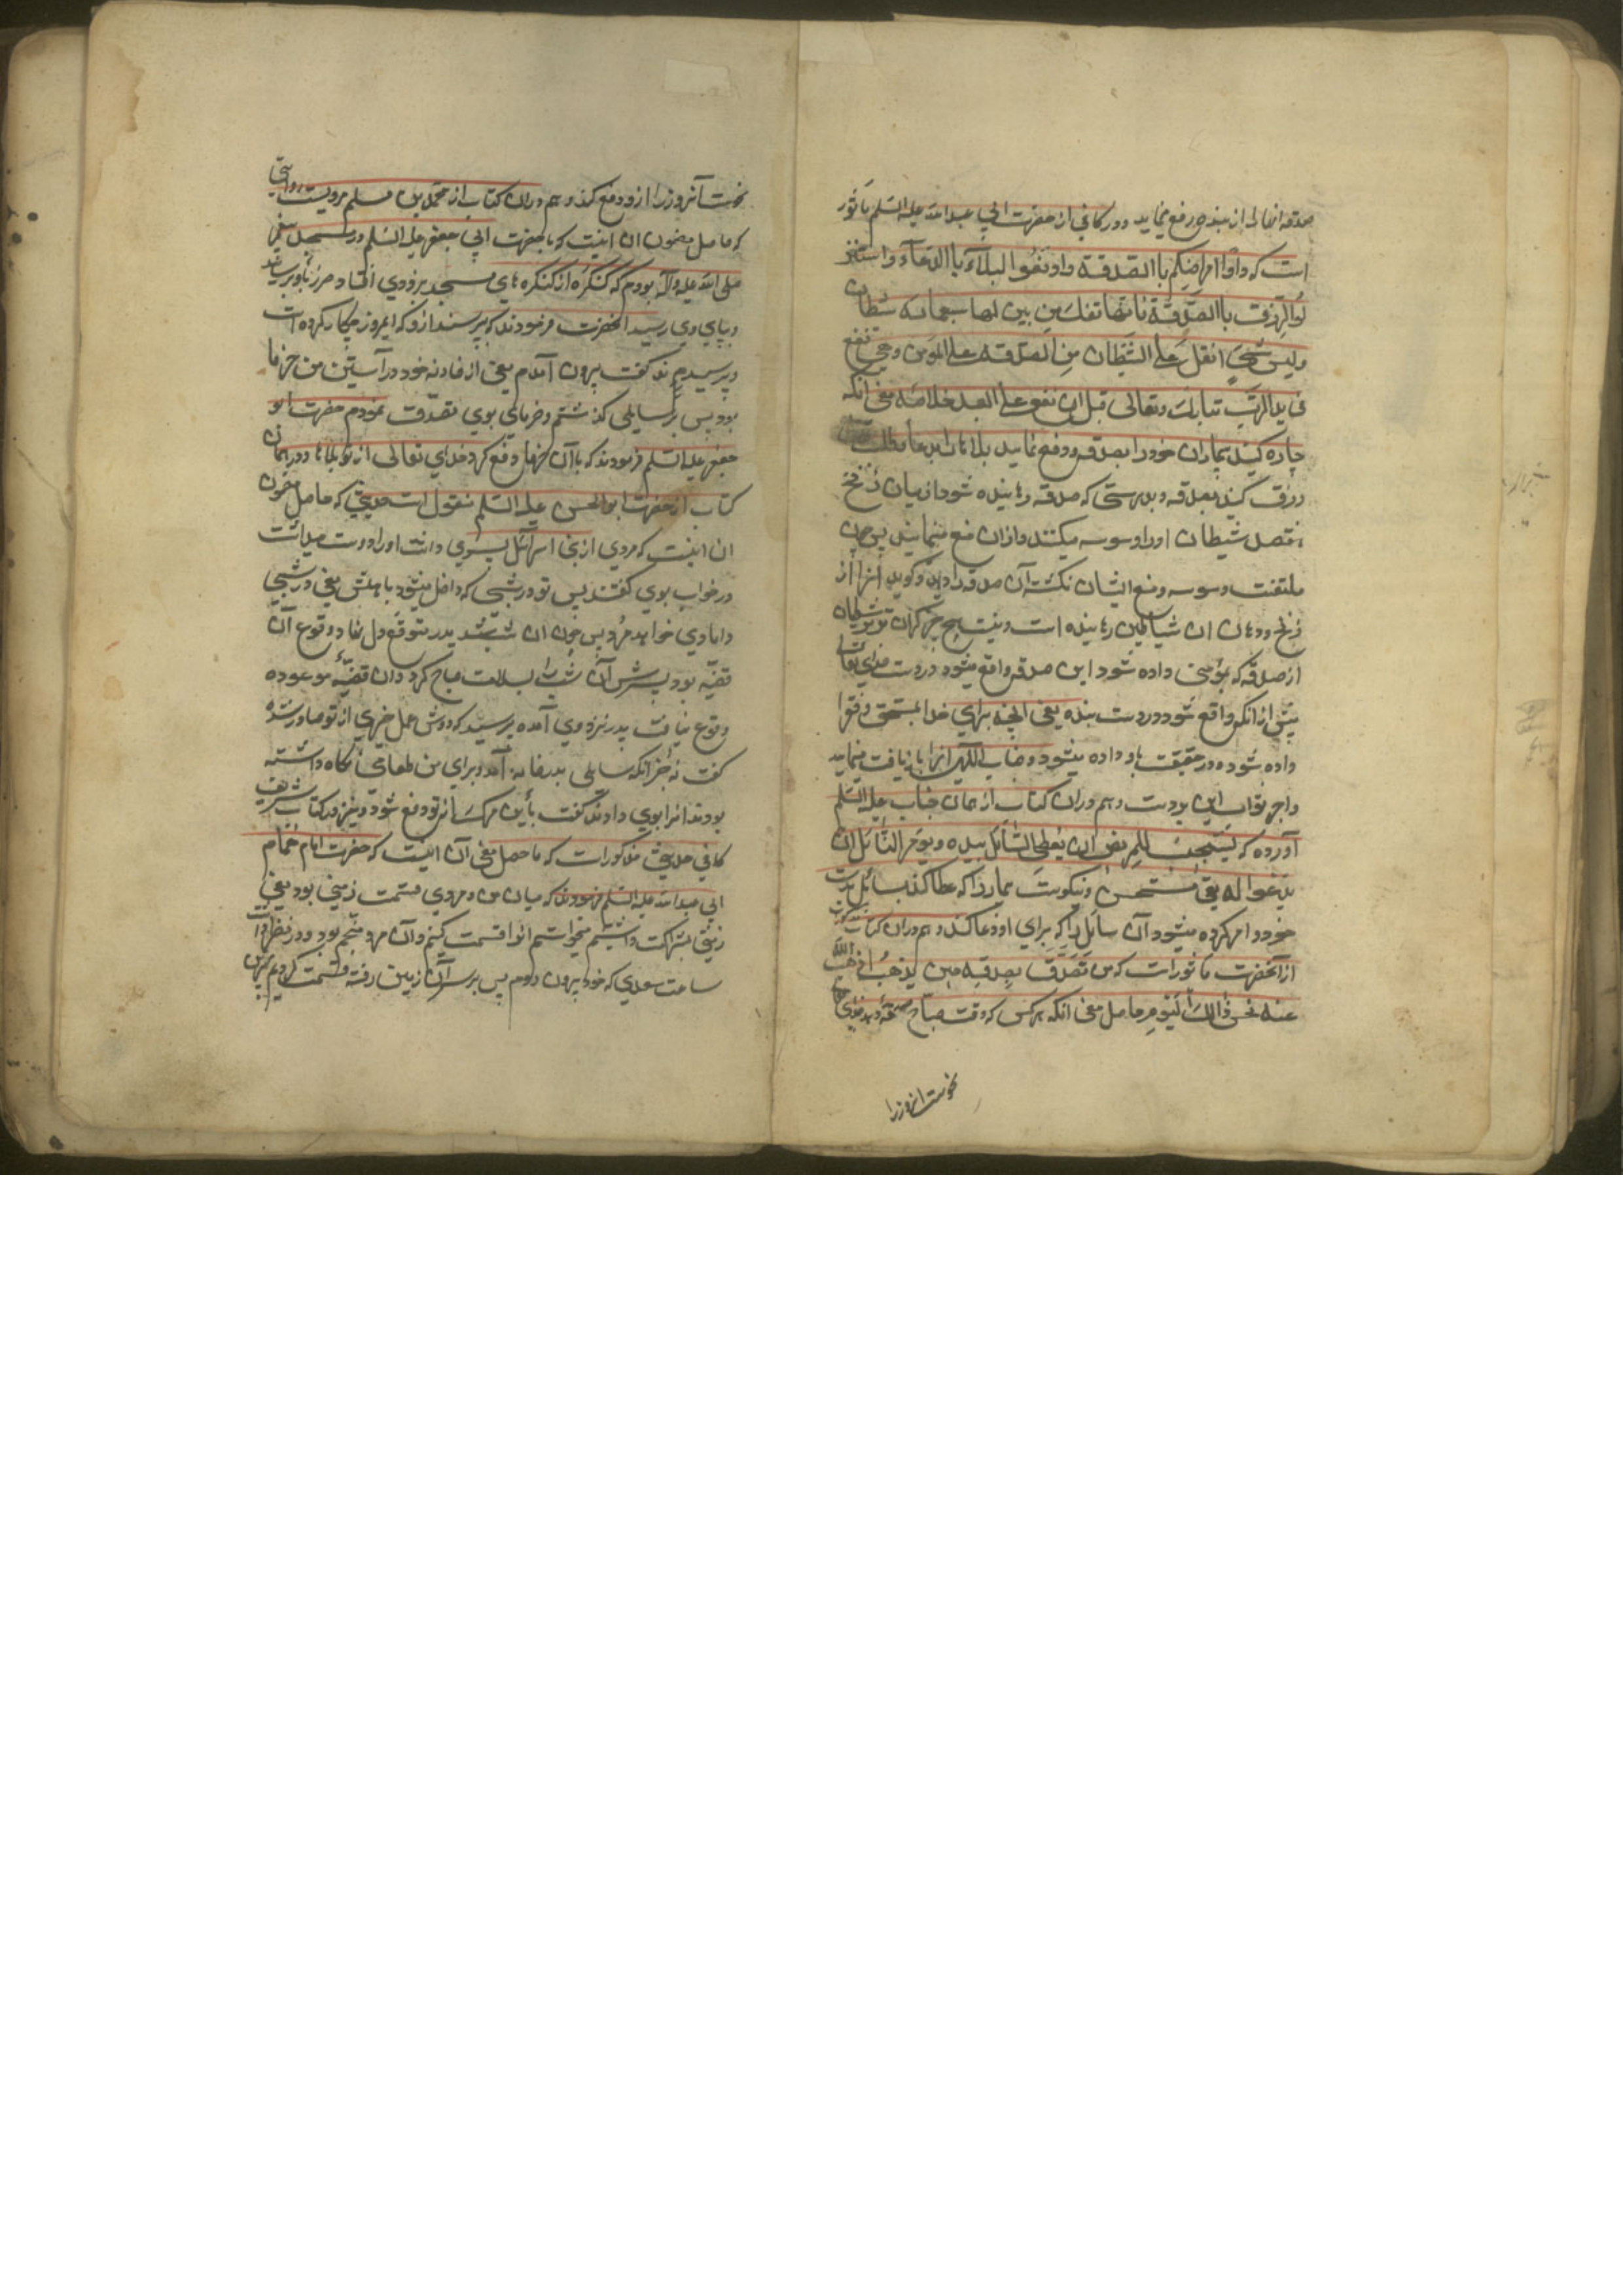 صدقه انها را از بنده رفع نماید و در کافی از حضرت ابی عبد الله علیه السلم ماثور
است که داووا امراضکم باالصدقة وادفعوا البلاء باالدعاء واستنز
لوا الرزق باالصدقة فانها تفک من بین لحا سبعمائه شیطان
ولیس شی اثقل علی الشیطان من الصدقه علی المومن وهی تقع
فی ید الرب تبارک وتعالی قبل ان تقع علی العبد خلاصه معنی انکه
چاره کنید بیماران خود را بصدقه ودفع نمایید بلاها را بدعا وطلب
رزق کنید بصدقه وبدرستی که صدقه رهانیده شود از میان زنخ
هفتصد شیطان او را وسوسه میکنند وازان منع مینمایند پس چون
ملتفت وسوسه ومنع ایشان نگشته آن صدقه را داد گویا انرا از
زنخ ودهان ان شیاطین رهانیده است ونیست هیچ چیز گران تر بر شیطان
از صدقه که بمؤمنی داده شود این صدقه واقع میشود در دست خدای تعالی
پیش از انکه واقع شود در دست بنده یعنی آنچه برای خدا بمستحق وفقرا
داده شود در حقیقت باو داده میشود وجناب الهی انرا بازیافت مینماید
واجر وثواب این بر اوست وهم دران کتاب از همان جناب علیه السلم
آورده که یستحب للمریض ان یعطی السائل بیده ویومر السائل ان
یدعوا له یعنی مستحسن ونیکوست بیمار را که عطا کند بسائل بدست
خود وامر کرده میشود آن سائل را که برای او دعا کند وهم دران کتاب مذکور
از آنحضرت ماثور است که من تصدق بصدقه حین یصبح اذهب الله
عنه نحس ذالک الیوم حاصل معنی انکه هر کس که وقت صباح صدقه دهد خدای تعالی
نحوست آنروز را
نحوست آنروز را از ودفع کند وهم دران کتاب از محمد بن مسلم مرویست روایتی
که حاصل مضمون ان اینست که با حضرت ابی جعفر علیه السلم در مسجد پیغمبر
صلی الله علیه وآله بودم که کنگره از کنگره های مسجد بر مردی افتاد وضرر باو نرسانید
وبپای وی رسید انحضرت فرمودند که بپرسند ازو که امروز چکار کرده است
وپرسیدند گفت بیرون آمدم یعنی از خانه خود ودر آستین من خرما
بود پس بر سایلی گذشتم وخرمای بوی تصدق نمودم حضرت ابو
جعفر علیه السلم فرمودند که باآن خرما دفع کرد خدای تعالی از تو بلاها ودر همان
کتاب از حضرت ابو الحسن علیه السلم منقول است حدیثی که حاصل مضمون
ان اینست که مردی از بنی اسرائیل پسری داشت او را دوست میداشت
در خواب بوی گفتند پسر تو در شبی که داخل میشود باهلش یعنی در شب
دامادی خواهد مرد پس چون ان شب شد پدر متوقع دل نهاد وقوع آن
قضیه بود پسرش آن شب را بسلامت صباح کرد وان قضیهٔ موعوده
وقوع نیافت پدر نزد وی آمده پرسید که دوش عمل خیری از تو صادر شده
گفت نه جز انکه سایلی بدر خانه آمد وبرای من طعامی نگاه داشته
بودند انرا بوی دادند گفت باین مرک از تو دفع شود ونیز در کتاب شریف
کافی حدیثی مذکور است که ماحصل معنی آن اینست که حضرت امام همام
ابی عبد الله علیه السلم فرمودند که میان من ومردی قسمت زمینی بود یعنی
زمینی بشراکت داشتیم میخواستیم انرا قسمت کنیم وآن مرد منجم بود ودر نظر داشت
ساعت سعدی که خود بیرون رود پس بر سر آن زمین رفته قسمت کردیم